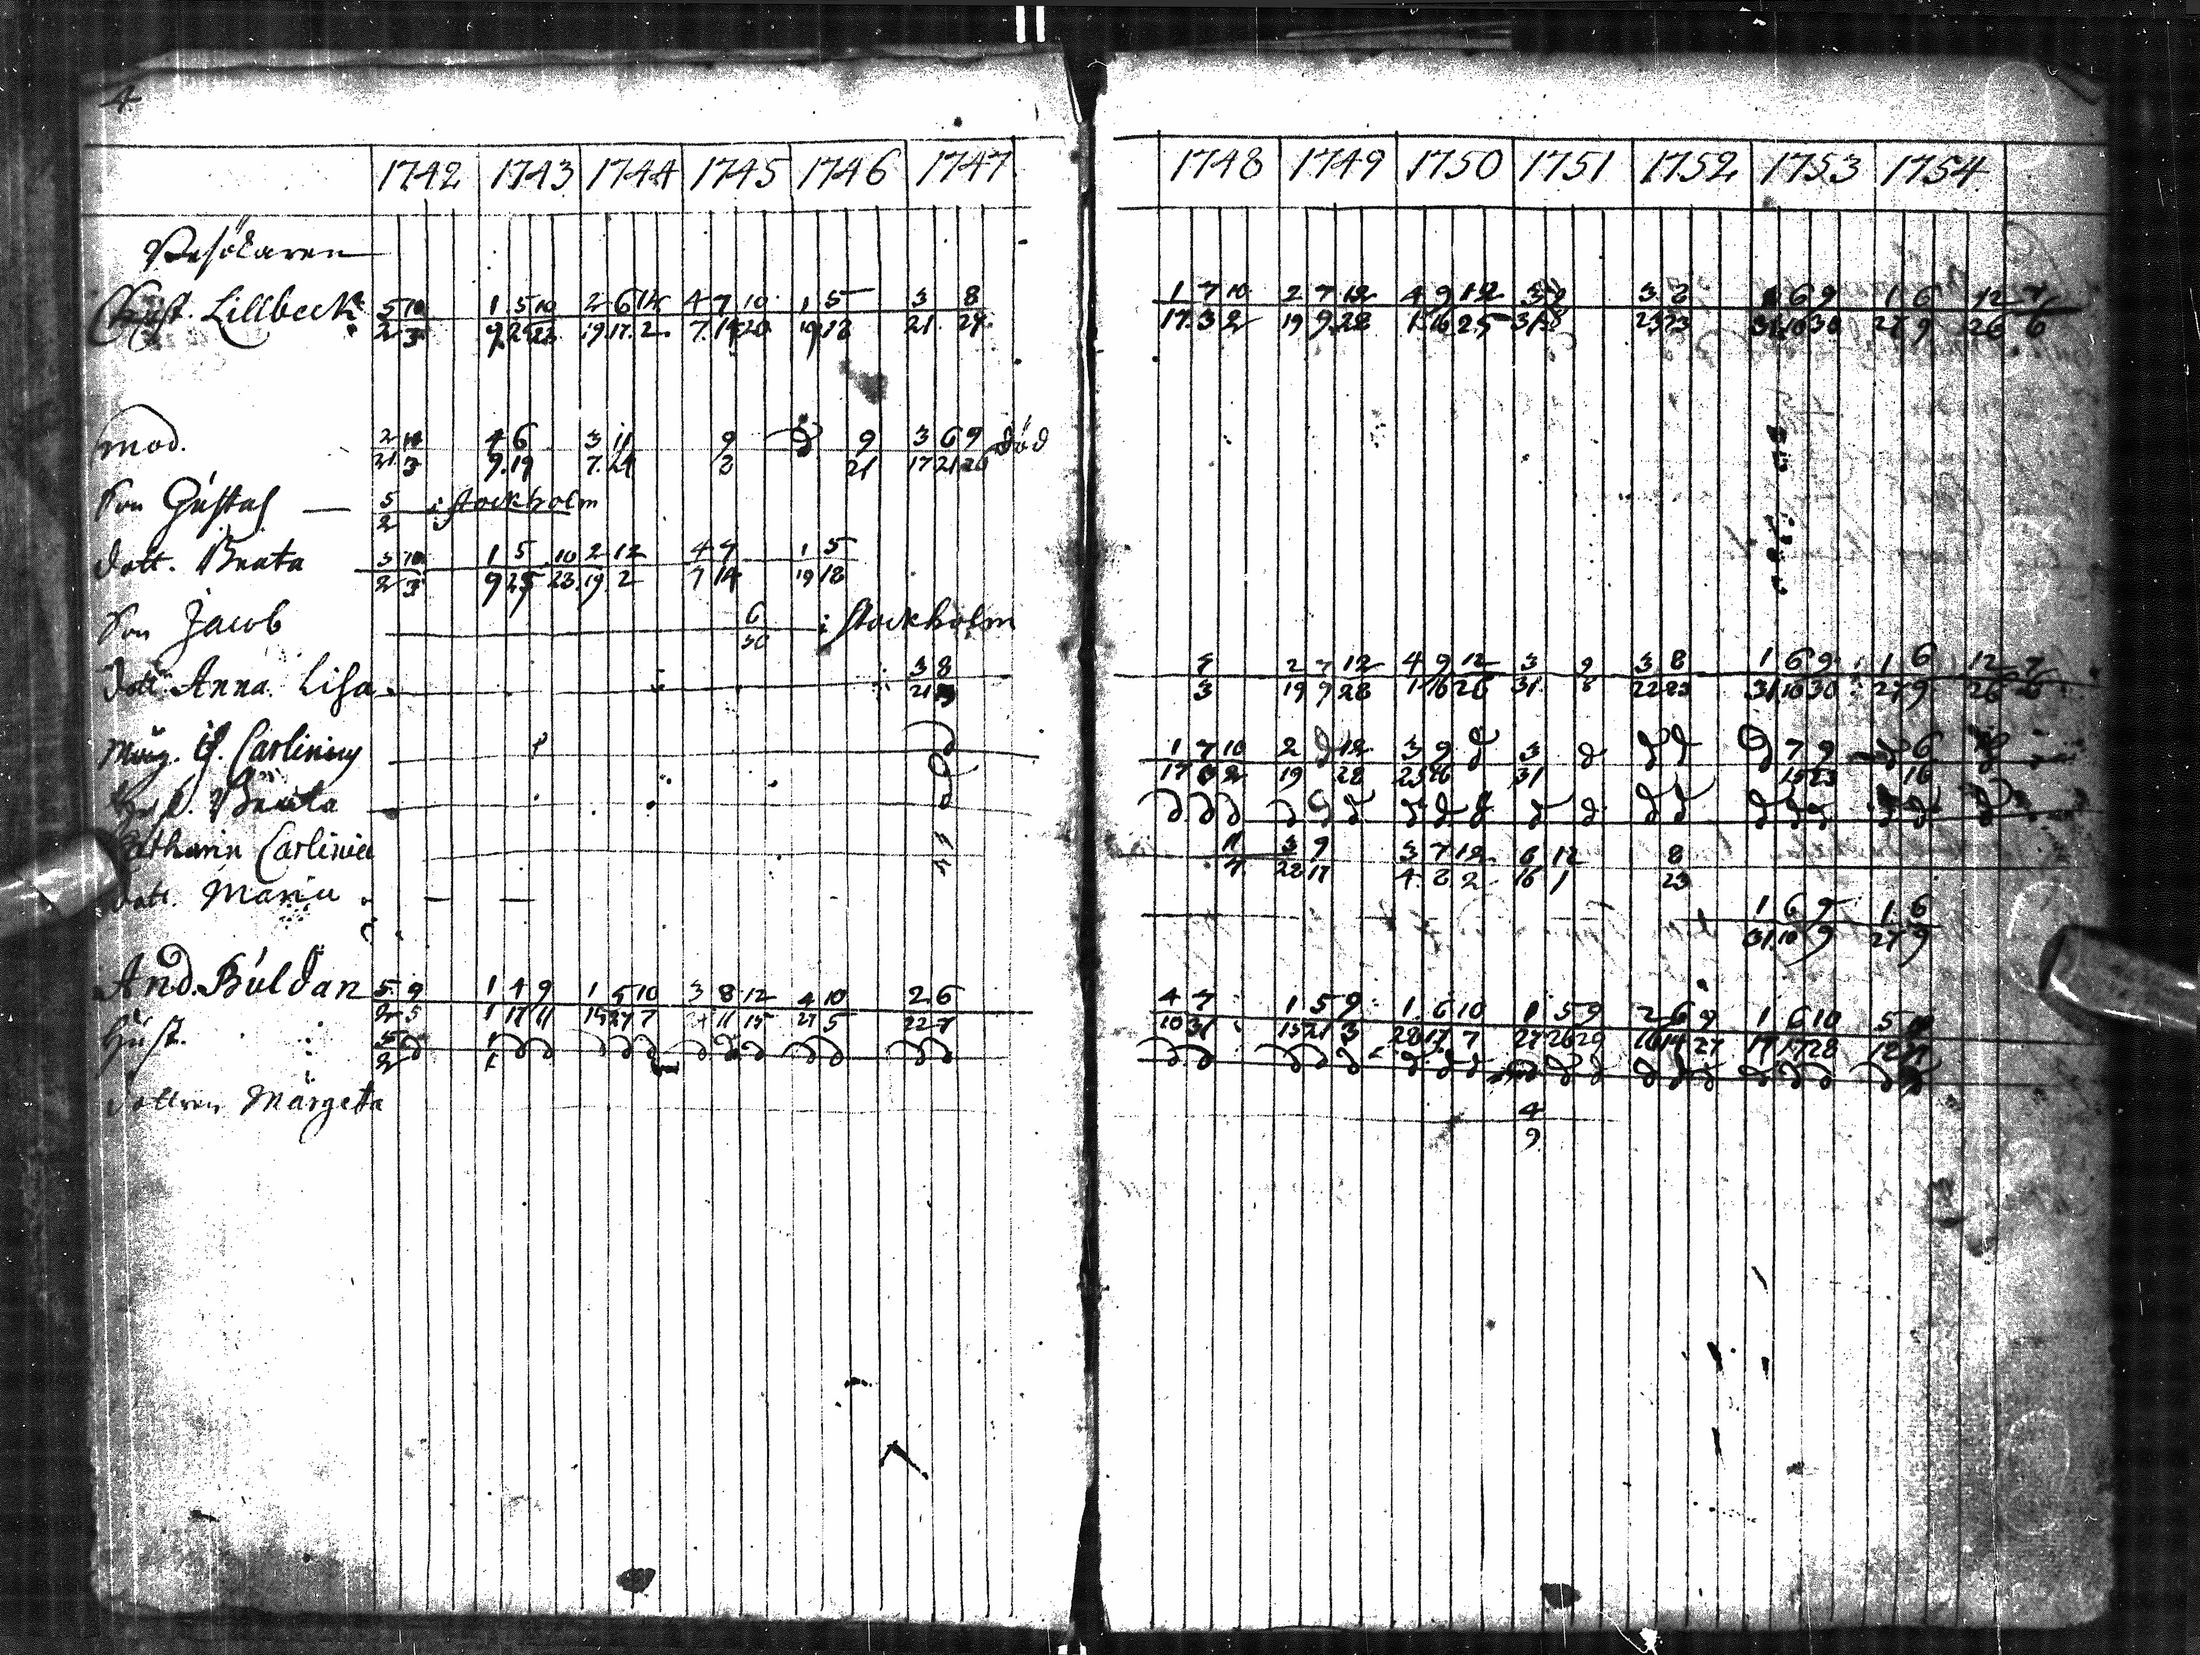 4
1742 1743 1744 1745 1746 1747 1748 1749 1750 1751 1752 1753 1754
Besökaren
Christ. Lillbeck 5 10 1 5 10 2 6 12 4 7 10 1 5 3 8 1 7 10 2 7 12 4 9 12 3 3 8 1 6 9 1 6 12 7
2 3 9 25 23 19 17 2 7 14 20 19 18 21 29 17 3 2 19 9 28 1 16 25 31 8 23 23 31 10 30 27 9 26 6
mod. 2 10 4 6 3 11 9 d 9 3 6 9 död
21 3 9 19 7 21 2 21 17 21 20
Son Gustaf 5 i Stockholm
2
dott. Beata 5 10 1 5 10 2 12 4 7 1 5
2 3 9 25 23 19 2 7 14 19 18
Son Jacob 6 i Stockholm
30
dott. Anna Lisa 3 8 7 2 7 12 4 9 12 3 9 3 8 1 6 9 1 6 12 7
21 29 3 19 9 28 1 16 26 31 8 22 23 31 10 30 27 9 26 6
Carlinius d 1 7 10 2 d 12 3 9 d 3 d d d d 7 9 d 6
17 3 2 19 28 25 16 31 15 23 16
Beata d d d d d d d d d d d d d d d d d d d
Catharin Carlinia 3 9 3 7 12 6 12 8
7 22 17 4 8 2 16 1 23
dott. Maria 1 6 9 1 6
31 10 9 27 9
And. Buldan 5 9 1 4 9 1 5 10 3 8 12 4 10 2 6 4 7 1 5 9 1 6 10 1 5 9 2 6 9 1 6 10 5 10
2 5 1 17 11 15 27 7 11 15 27 5 22 7 10 31 15 21 3 28 17 7 27 26 29 16 14 27 17 17 28 12
Hust. 5 d 1 d d d d d d d d d d d d d d d d d d d d d d d d d d d d d d d d d
2 1
dottren Margeta 4
9